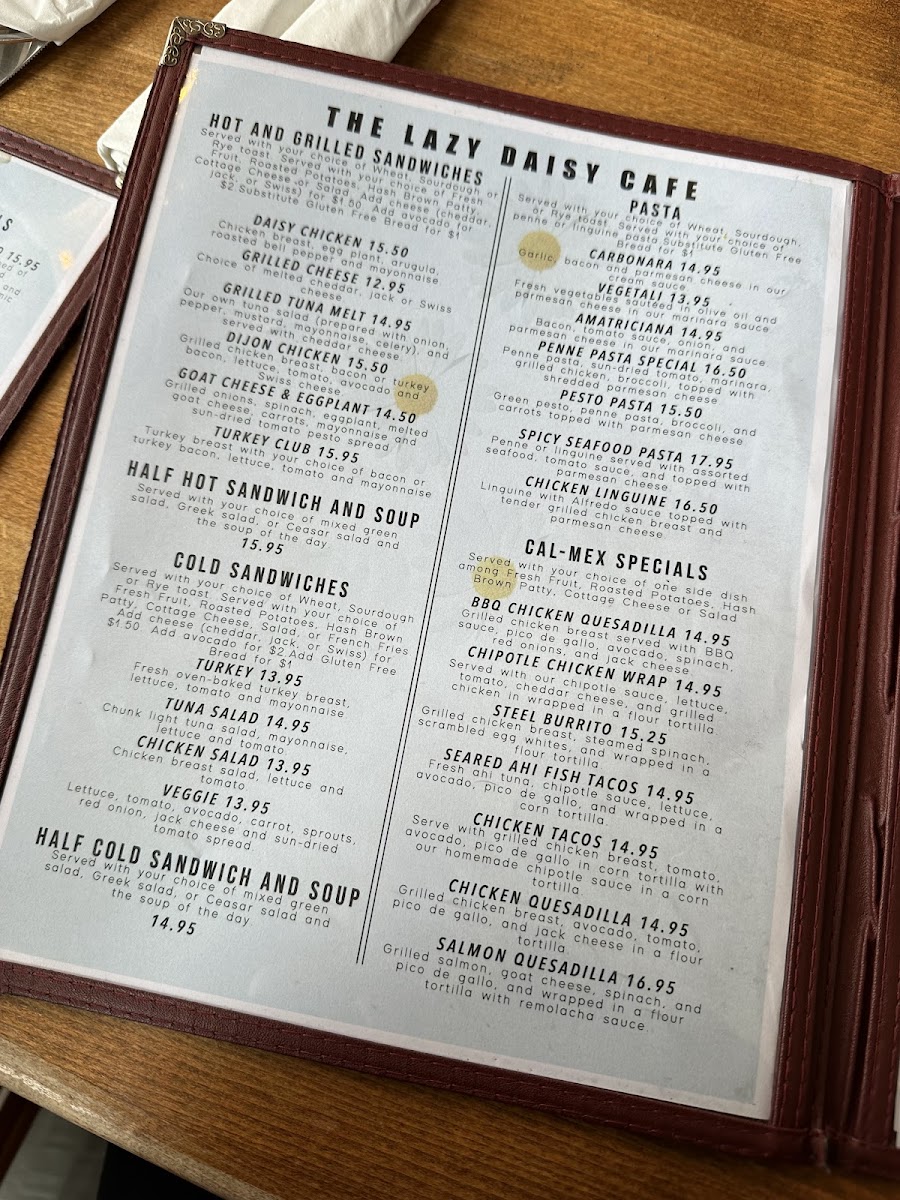 THE LAZY DAISY CAFE
HOT AND GRILLED SANDWICHES
Served with your choice of Wheat, Sourdough or
Rye toast. Served with your choice of Fresh
Fruit, Roasted Potatoes, Hash Brown Patty,
Cottage Cheese or Salad. Add cheese (cheddar,
jack, or Swiss) for $1.50. Add avocado for
$2.Substitute Gluten Free Bread for $1
DAISY CHICKEN 15.50
Chicken breast, egg plant, arugula,
roasted bell pepper and mayonnaise
GRILLED CHEESE 12.95
Choice of melted cheddar, jack or Swiss
cheese
GRILLED TUNA MELT 14.95
Our own tuna salad (prepared with onion,
pepper, mustard, mayonnaise, celery), and
served with cheddar cheese.
DIJON CHICKEN 15.50
Grilled chicken breast, bacon or turkey
bacon, lettuce, tomato, avocado and
Swiss cheese
GOAT CHEESE & EGGPLANT 14.50
Grilled onions, spinach, eggplant, melted
goat cheese, carrots, mayonnaise and
sun-dried tomato pesto spread
TURKEY CLUB 15.95
Turkey breast with your choice of bacon or
turkey bacon, lettuce, tomato and mayonnaise
HALF HOT SANDWICH AND SOUP
Served with your choice of mixed green
salad, Greek salad, or Ceasar salad and
the soup of the day
15.95
COLD SANDWICHES
Served with your choice of Wheat, Sourdough
or Rye toast. Served with your choice of
Fresh Fruit, Roasted Potatoes, Hash Brown
Patty, Cottage Cheese, Salad, or French Fries
Add cheese (cheddar, jack, or Swiss) for
$1.50. Add avocado for $2.Add Gluten Free
Bread for $1
TURKEY 13.95
Fresh oven-baked turkey breast,
lettuce, tomato and mayonnaise
TUNA SALAD 14.95
Chunk light tuna salad, mayonnaise,
lettuce and tomato
CHICKEN SALAD 13.95
Chicken breast salad, lettuce and
tomato.
VEGGIE 13.95
Lettuce, tomato, avocado, carrot, sprouts,
red onion, jack cheese and sun-dried
tomato spread
HALF COLD SANDWICH AND SOUP
Served with your choice of mixed green
salad, Greek salad, or Ceasar salad and
the soup of the day
14.95
PASTA
Served with your choice of Wheat, Sourdough,
or Rye toast. Served with your choice of
penne or linguine pasta.Substitute Gluten Free
Bread for $1
CARBONARA 14.95
Garlic, bacon and parmesan cheese in our
cream sauce.
VEGETALI 13.95
Fresh vegetables sautéed in olive oil and
parmesan cheese in our marinara sauce.
AMATRICIANA 14.95
Bacon, tomato sauce, onion, and
parmesan cheese in our marinara sauce
PENNE PASTA SPECIAL 16.50
Penne pasta, sun-dried tomato, marinara,
grilled chicken, broccoli, topped with
shredded parmesan cheese
PESTO PASTA 15.50
Green pesto, penne pasta, broccoli, and
carrots topped with parmesan cheese
SPICY SEAFOOD PASTA 17.95
Penne or linguine served with assorted
seafood, tomato sauce, and topped with
parmesan cheese
CHICKEN LINGUINE 16.50
Linguine with Alfredo sauce topped with
tender grilled chicken breast and
parmesan cheese
CAL-MEX SPECIALS
Served with your choice of one side dish
among Fresh Fruit, Roasted Potatoes, Hash
Brown Patty, Cottage Cheese or Salad
BBQ CHICKEN QUESADILLA 14.95
Grilled chicken breast served with BBQ
sauce, pico de gallo, avocado, spinach,
red onions, and jack cheese
CHIPOTLE CHICKEN WRAP 14.95
Served with our chipotle sauce, lettuce,
tomato, cheddar cheese, and grilled
chicken in wrapped in a flour tortilla
STEEL BURRITO 15.25
Grilled chicken breast, steamed spinach,
scrambled egg whites, and wrapped in a
flour tortilla
SEARED AHI FISH TACOS 14.95
Fresh ahi tuna, chipotle sauce, lettuce,
avocado, pico de gallo, and wrapped in a
corn tortilla.
CHICKEN TACOS 14.95
Serve with grilled chicken breast, tomato,
avocado, pico de gallo in corn tortilla with
our homemade chipotle sauce in a corn
tortilla.
CHICKEN QUESADILLA 14.95
Grilled chicken breast, avocado, tomato,
pico de gallo, and jack cheese in a flour
tortilla
SALMON QUESADILLA 16.95
Grilled salmon, goat cheese, spinach, and
pico de gallo, and wrapped in a flour
tortilla with remolacha sauce.
15.95